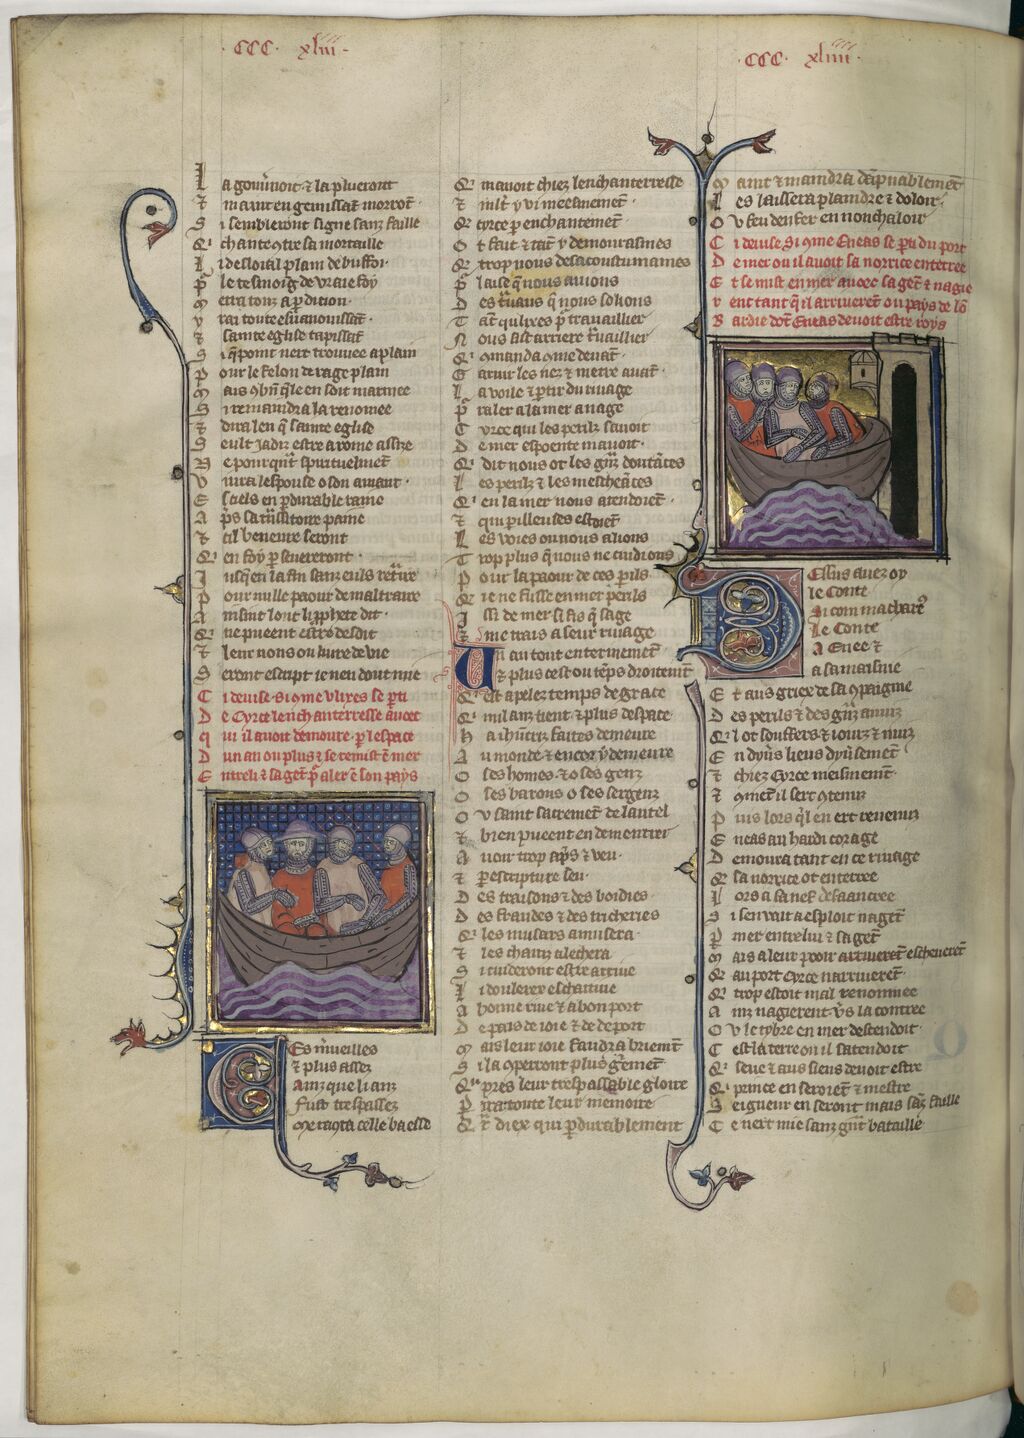 CCC xliii
CCC xliiii
L a gouv̄noit ⁊ la plueront
⁊ maint en gemissāt morrōt
S i sembleront signe sanz faille
Q' chante ꝯtre sa mortaille
L i desloial plain de buffoi
P̄ le tesmoīg de vraie foy
M etra touz a ꝑdition
Y rai toute esvanouissāt
⁊ sainte eglise tapissāt
S i q̄ point nert trouvee a plain
P our le felon de rage plain
M ais ꝯbn̄ q̄le en soit marmee
S i remaindra la renomee
⁊ dira len q̄ sainte eglise
S eult jadiz estre a rome assize
N e pourqn̄t spirituelmēt
V ivra lespouse o son amant
E s ciels en ꝑdurable raine
A p̄s sa trāsitoire paine
⁊ cil
Q' en foy ꝑsevereront
J usqen la fin sanz euls ret̄ire
P our nulle paour de maltraire
A insint lont li ꝓphete dit
Q' ne pueent estre desdit
⁊ leur nons ou livre de vie
S eront escript ie nen dout mie
C i devise si ꝯme Ulixes se ꝑti
D e Cyrce lenchanterresse avoec
q ui il avoit demoure ꝑ lespace
D un an ou plus ⁊ se remist ē mer
E ntre li ⁊ sa gēt p̄ aler ē son pays
D Es m̄veilles
⁊ plus assez
Ainz que li anz
Fust trespassez
Me raconta celle baesse
Q' mavoit chiez lenchanterresse
⁊ mlt̄ y vi meesmemēt
Q' cyrce ꝑ enchantemēt
O t fait ⁊ tāt y demourasmes
Q' trop nous desacoustumasmes
P̄ laise q̄ nous avions
D es t̄vaus q̄ nous solions
T āt qulixes p̄ travaillier
N ous fist arriere t̄vaillier
Q' ꝯmanda ꝯme devāt
G arnir les nez ⁊ metre avāt
L a voile ⁊ ꝑtir du rivage
P̄ raler a la mer a nage
C yrce qui les perilz savoit
D e mer espoente mavoit
Q' dit nous ot les gn̄z doutāces
L es perilz ⁊ les mescheāces
Q' en la mer nous atendoiēt
⁊ qui ꝑilleuses estoiēt
L es voies ou nous alions
T rop plus q̄ nous ne cudions
P our la paour de ces ꝑils
Q' ie ne fusse en mer perils
I ssi de mer si fis q̄ sage
⁊ me trais a seur rivage
U n an tout entierinemēt
⁊ plus cest ou tēps droitemt̄
Q' est apelez temps de grace
Q' mil anz tient ⁊ plus despace
H a ihūcriz faites demeure
A u monde ⁊ encor y demeure
O ses homes ⁊ o ses genz
O ses barons o ses sergenz
O u saint sacremēt de lautel
⁊ bien pueent en dementrer
A voir trop ap̄s ⁊ veu
⁊ ꝑ escripture seu
D es traisons ⁊ des boidies
D es fraudes ⁊ des tricheries
Q' les musars amusera
⁊ les chaitiz alechera
S i cuideront estre arrive
L i douleres eschaitive
A bonne rive ⁊ a bon port
D e pais de ioie ⁊ de deport
M ais leur ioie faudra briemēt
S i la ꝯperront plus griemēt
Q' p̄res leur trespassable gloire
P̄ ira toute leur memoire
Q' diex qui ꝑdurablement
M aint ⁊ maindra dāpnablement
L es laissera plaindre ⁊ doloir
O u feu denfer en nonchaloir
C i devise si ꝯme Eneas se ꝑti du port
D e mer ou il avoit sa norrice enterree
E t se mist en mer avoec sa gēt ⁊ nagie
r ent tant q̄ il arriverēt ou pays de lō
B ardie dōt Eneas devoit estre roys
D Essus avez oy
le Conte
Si com machar̄
Le Conte
A Enee ⁊
a sa maisnie
E t aus griex de sa ꝯpaignie
D es perils ⁊ des gn̄z anuiz
Q' lot souffers ⁊ iours ⁊ nuiz
E n dyūs lieus dyūsemēt
⁊ chiez Cyrce meismemēt
⁊ ꝯmēt il sert ꝯtenuz
P uis lors q'l en ert revenuz
E neas au hardi corage
D emoura tant en ce rivage
Q' sa norrice ot enterree
L ors a sa nef desaancree
S i sen vait a esploit nagēt
P̄ mer entre lui ⁊ sa gēt
M ais a leur pooir arriverēt eschiverēt
Q' au port Cyrce narriverēt
Q' trop estoit mal renomee
A inz nagierent v̄s la contree
O u le tybre en mer descendoit
C est la terre ou il satendoit
Q' seue ⁊ aus siens devoit estre
Q' prince en seroiēt ⁊ mestre
S eigneur en seront mais sāz faille
C e nert mie sanz gn̄t bataille